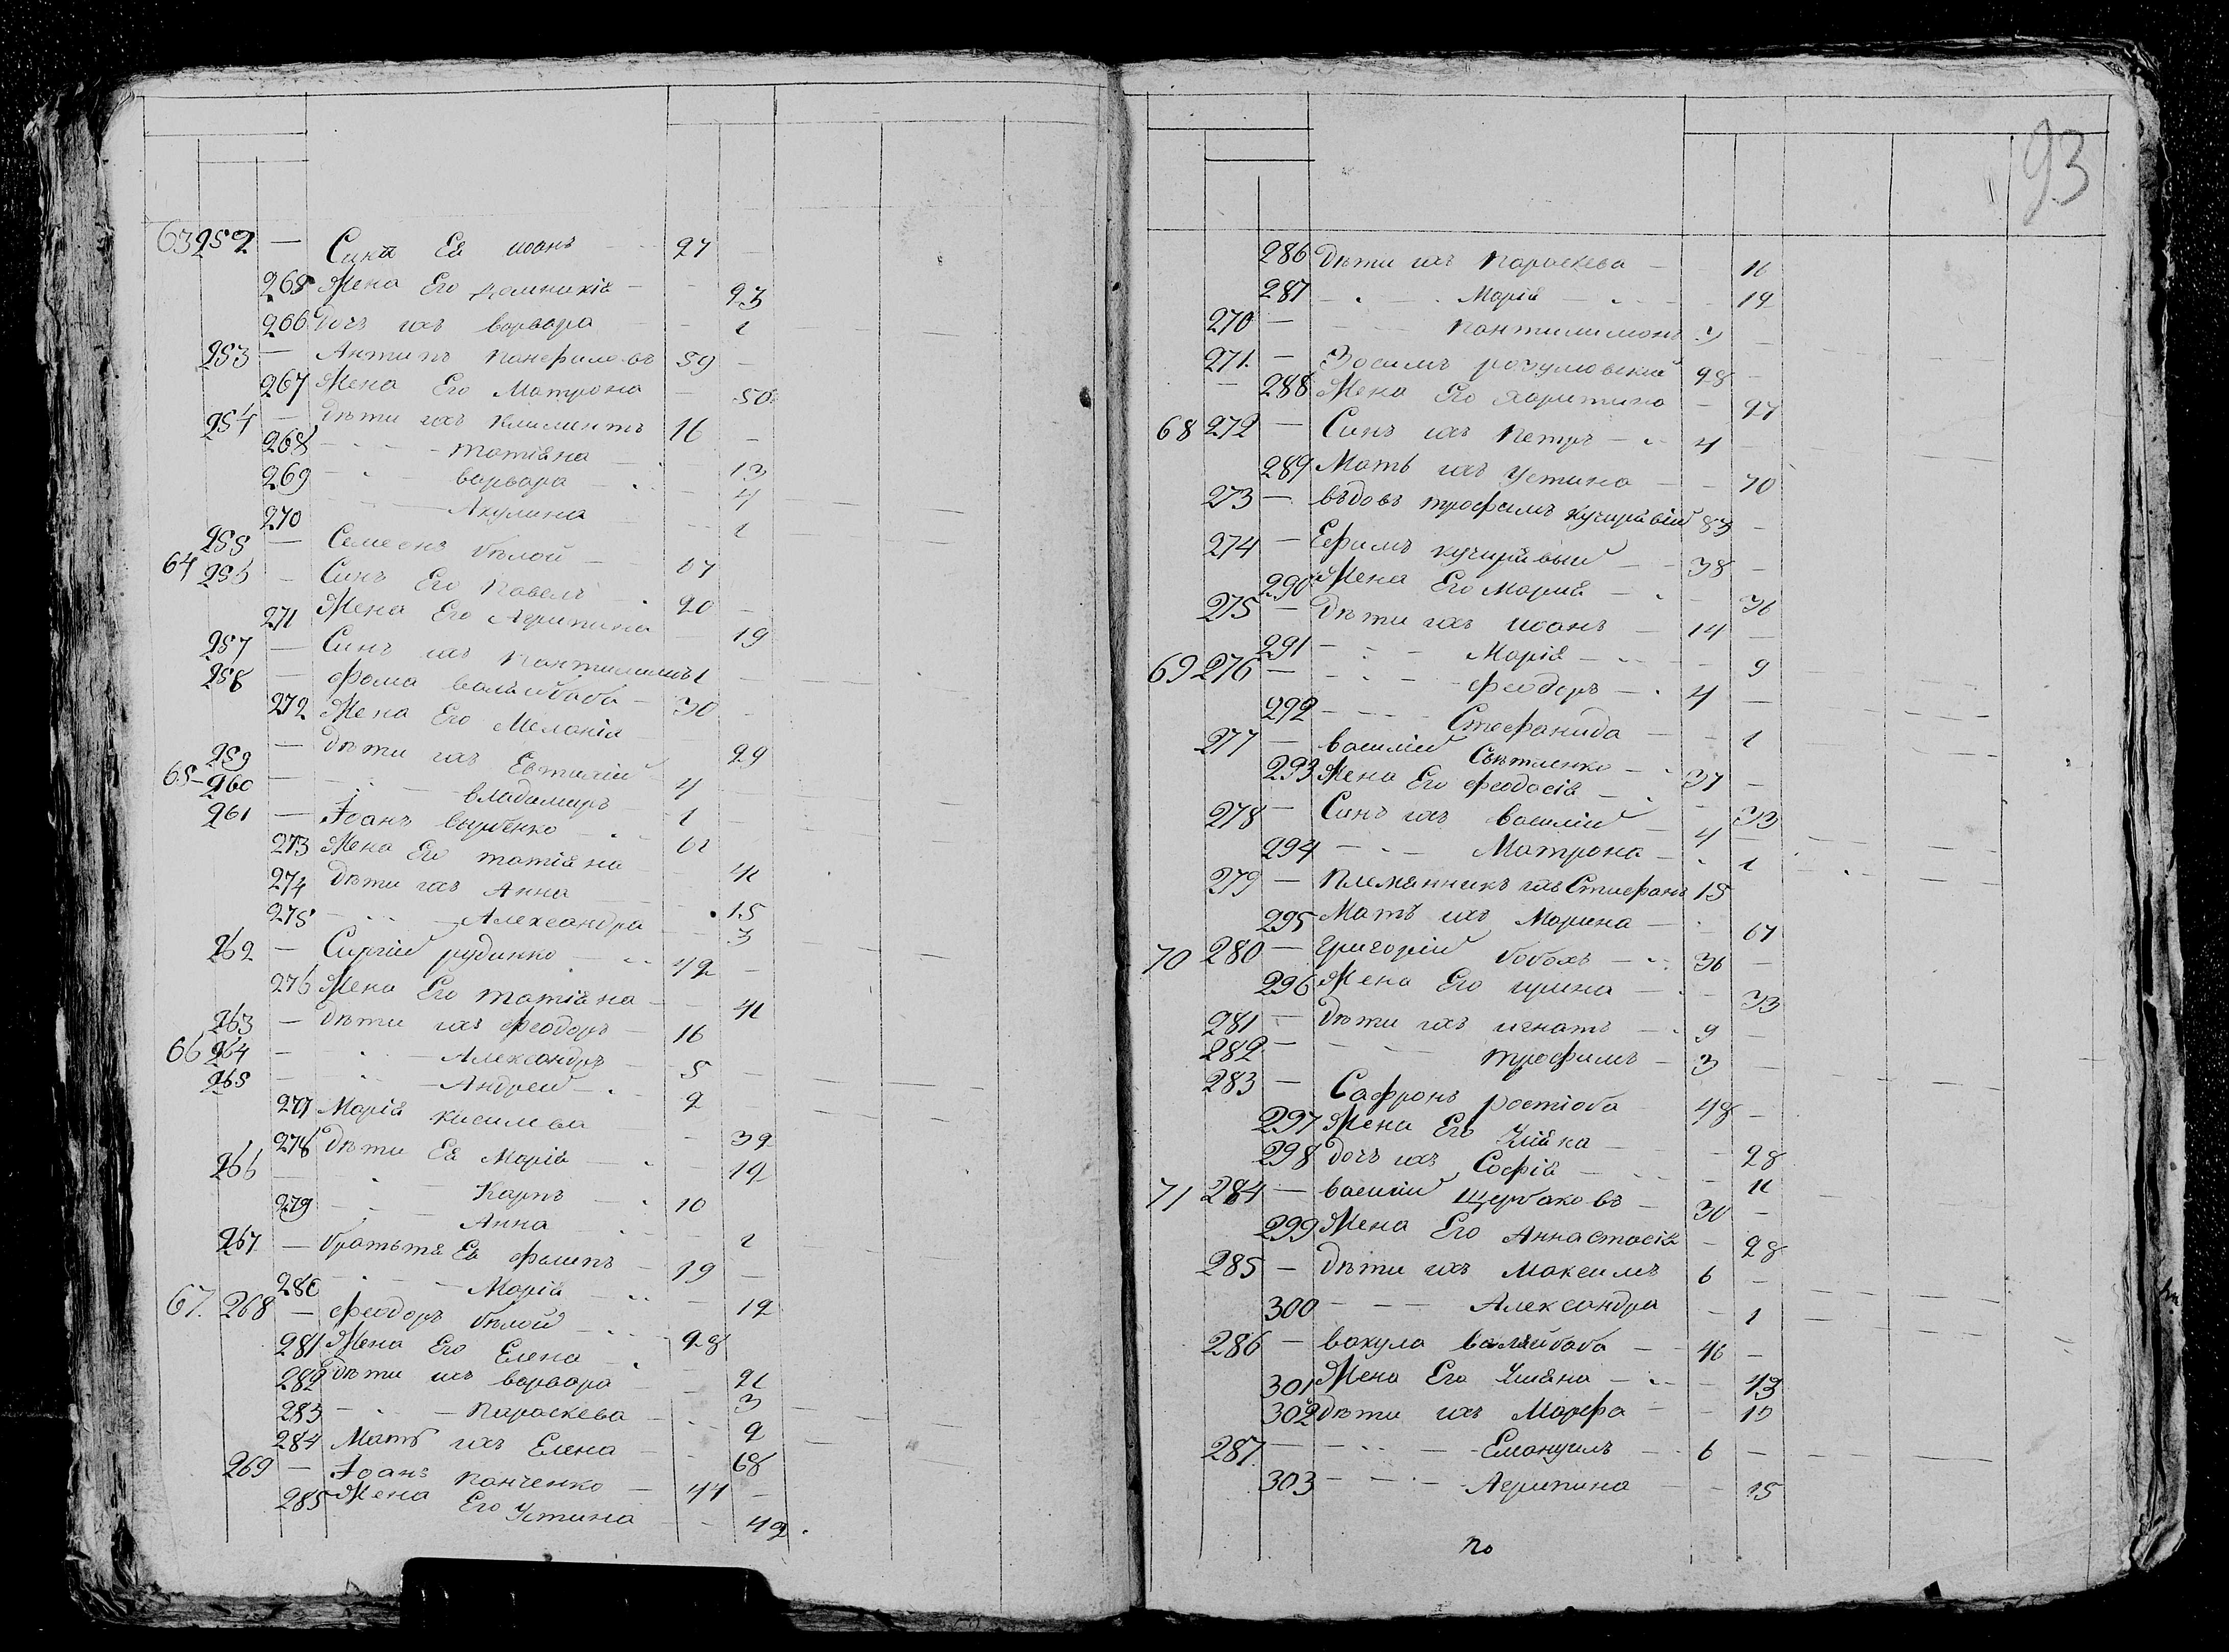 63 252 — Синъ Ея иоанъ — 27 —
265 Жена Его Домникія — — 23
266 Дочь ихъ варвара — — 1
253 — Антипъ Панфиловъ 59 —
267 Жена Его Матрона — 50
254 — Дѣти ихъ Климентъ 16 —
268 — — татіяна — 13
269 — — варвара — 4
270 — — Акулина — 1
255 — Семеонъ бѣлой — 67
64 256 — Синъ Его Павелъ — 20 —
271 Жена Его Агрипина 19
257 — Синъ ихъ Пантилимонъ 1
258 — фома валивбаба — 30 —
272 Жена Его Меланія — 29
259 — Дѣти ихъ Евтихій 4 —
65 — 260 — — владимиръ — 1 —
261 — Іоанъ вырвенко — 61
273 Жена Его татіяна — 41
274 Дѣти ихъ Анна — 15
275 — — Александра — 3
262 — Сиргій рудинко — 42 —
276 Жена Его татіяна — — 41
263 — Дѣти ихъ феодоръ — 16
66 264 — — Александръ — 5 —
265 — — Андрей — 2
277 Марія кисилева — — 39
278 Дѣти Ея Марія — — 12
266 — — Карпъ — 10
279 — — Анна — 2
267 — братътя Ея филипъ — 19 —
280 — — Марія — — 12
67. 268 — феодоръ бѣлой — 28
281 Жена Его Елена — 21
282 Дѣти ихъ варвара — 3
283 — — Параскева — — 2
284 Мать ихъ Елена — — 68
269 — Іоанъ Панченко — 44 —
285 Жена Его Устина — — 42
93
286 Дѣти ихъ Параскева — 16
287 — — Марія — — 12
270 — — Пантилимонъ 3 —
271. — Зосимъ розумовскій 28 —
288 Жена Его Харитина — 27
68 272 — Синъ ихъ Петръ — 4 —
289 Мать ихъ Устина — — 70
273 — вѣдовъ трофимъ кучирявій 83 —
274 — Ефимъ кучирявый — 38 —
290 Жена Его Мария — — 36
275 — Дѣти ихъ иоанъ — 14 —
291 — — Марія — — 9
69 276 — — феодоръ — 4 —
292 — — Стефанида — — 1
277 — василій Свѣтленко — 37 —
293 Жена Его феодосія — — 33
278 — Синъ ихъ василій — 4 —
294 — — Матрона — 1
279 — Племянникъ ихъ Стиефанъ 15
295 Мать ихъ Марина — 67
70 280 — григорій бобохъ — 36 —
296 Жена Его ирина — — 33
281 — Дѣти ихъ игнатъ — 9 —
282 — — трофимъ — 3 —
283 — Сафронъ ростіоба 48 —
297 Жена Его Уліяна — — 28
298 дочь ихъ Софія — — 11
71 284 — василій Щербаковъ — 30 —
299 Жена Его Аннастасія — 28
285 — Дѣти ихъ Максимъ 6 —
300 — — Александра — 1
286 — вакула валяйбаба — 46 —
301 Жена Его Уліяна — — 43
302 Дѣти ихъ Марфа — — 10
287. — — Емануилъ — 6 —
303 — — Агрипина — — 15
по